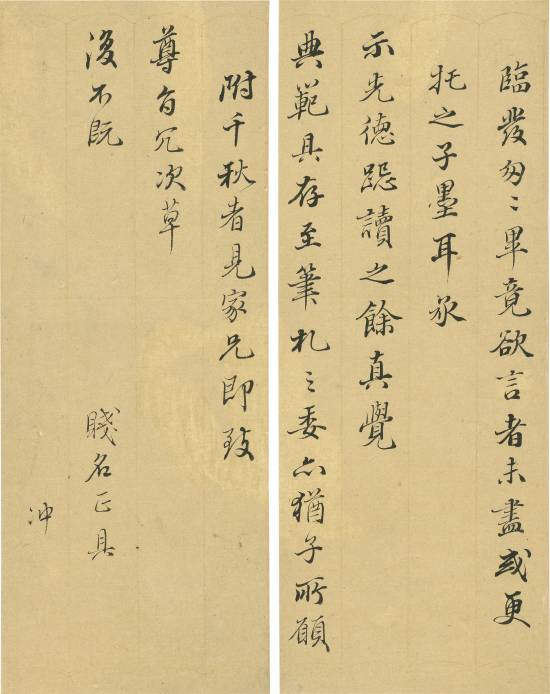 臨發匆〻畢竟欲言者未盡或更
托之子墨耳承
示先德跽讀之餘真覺
典範具存至筆札之委亦猶子所願
附千秋者見家兄即致
尊旨冗次草
復不既
賤名正具
冲